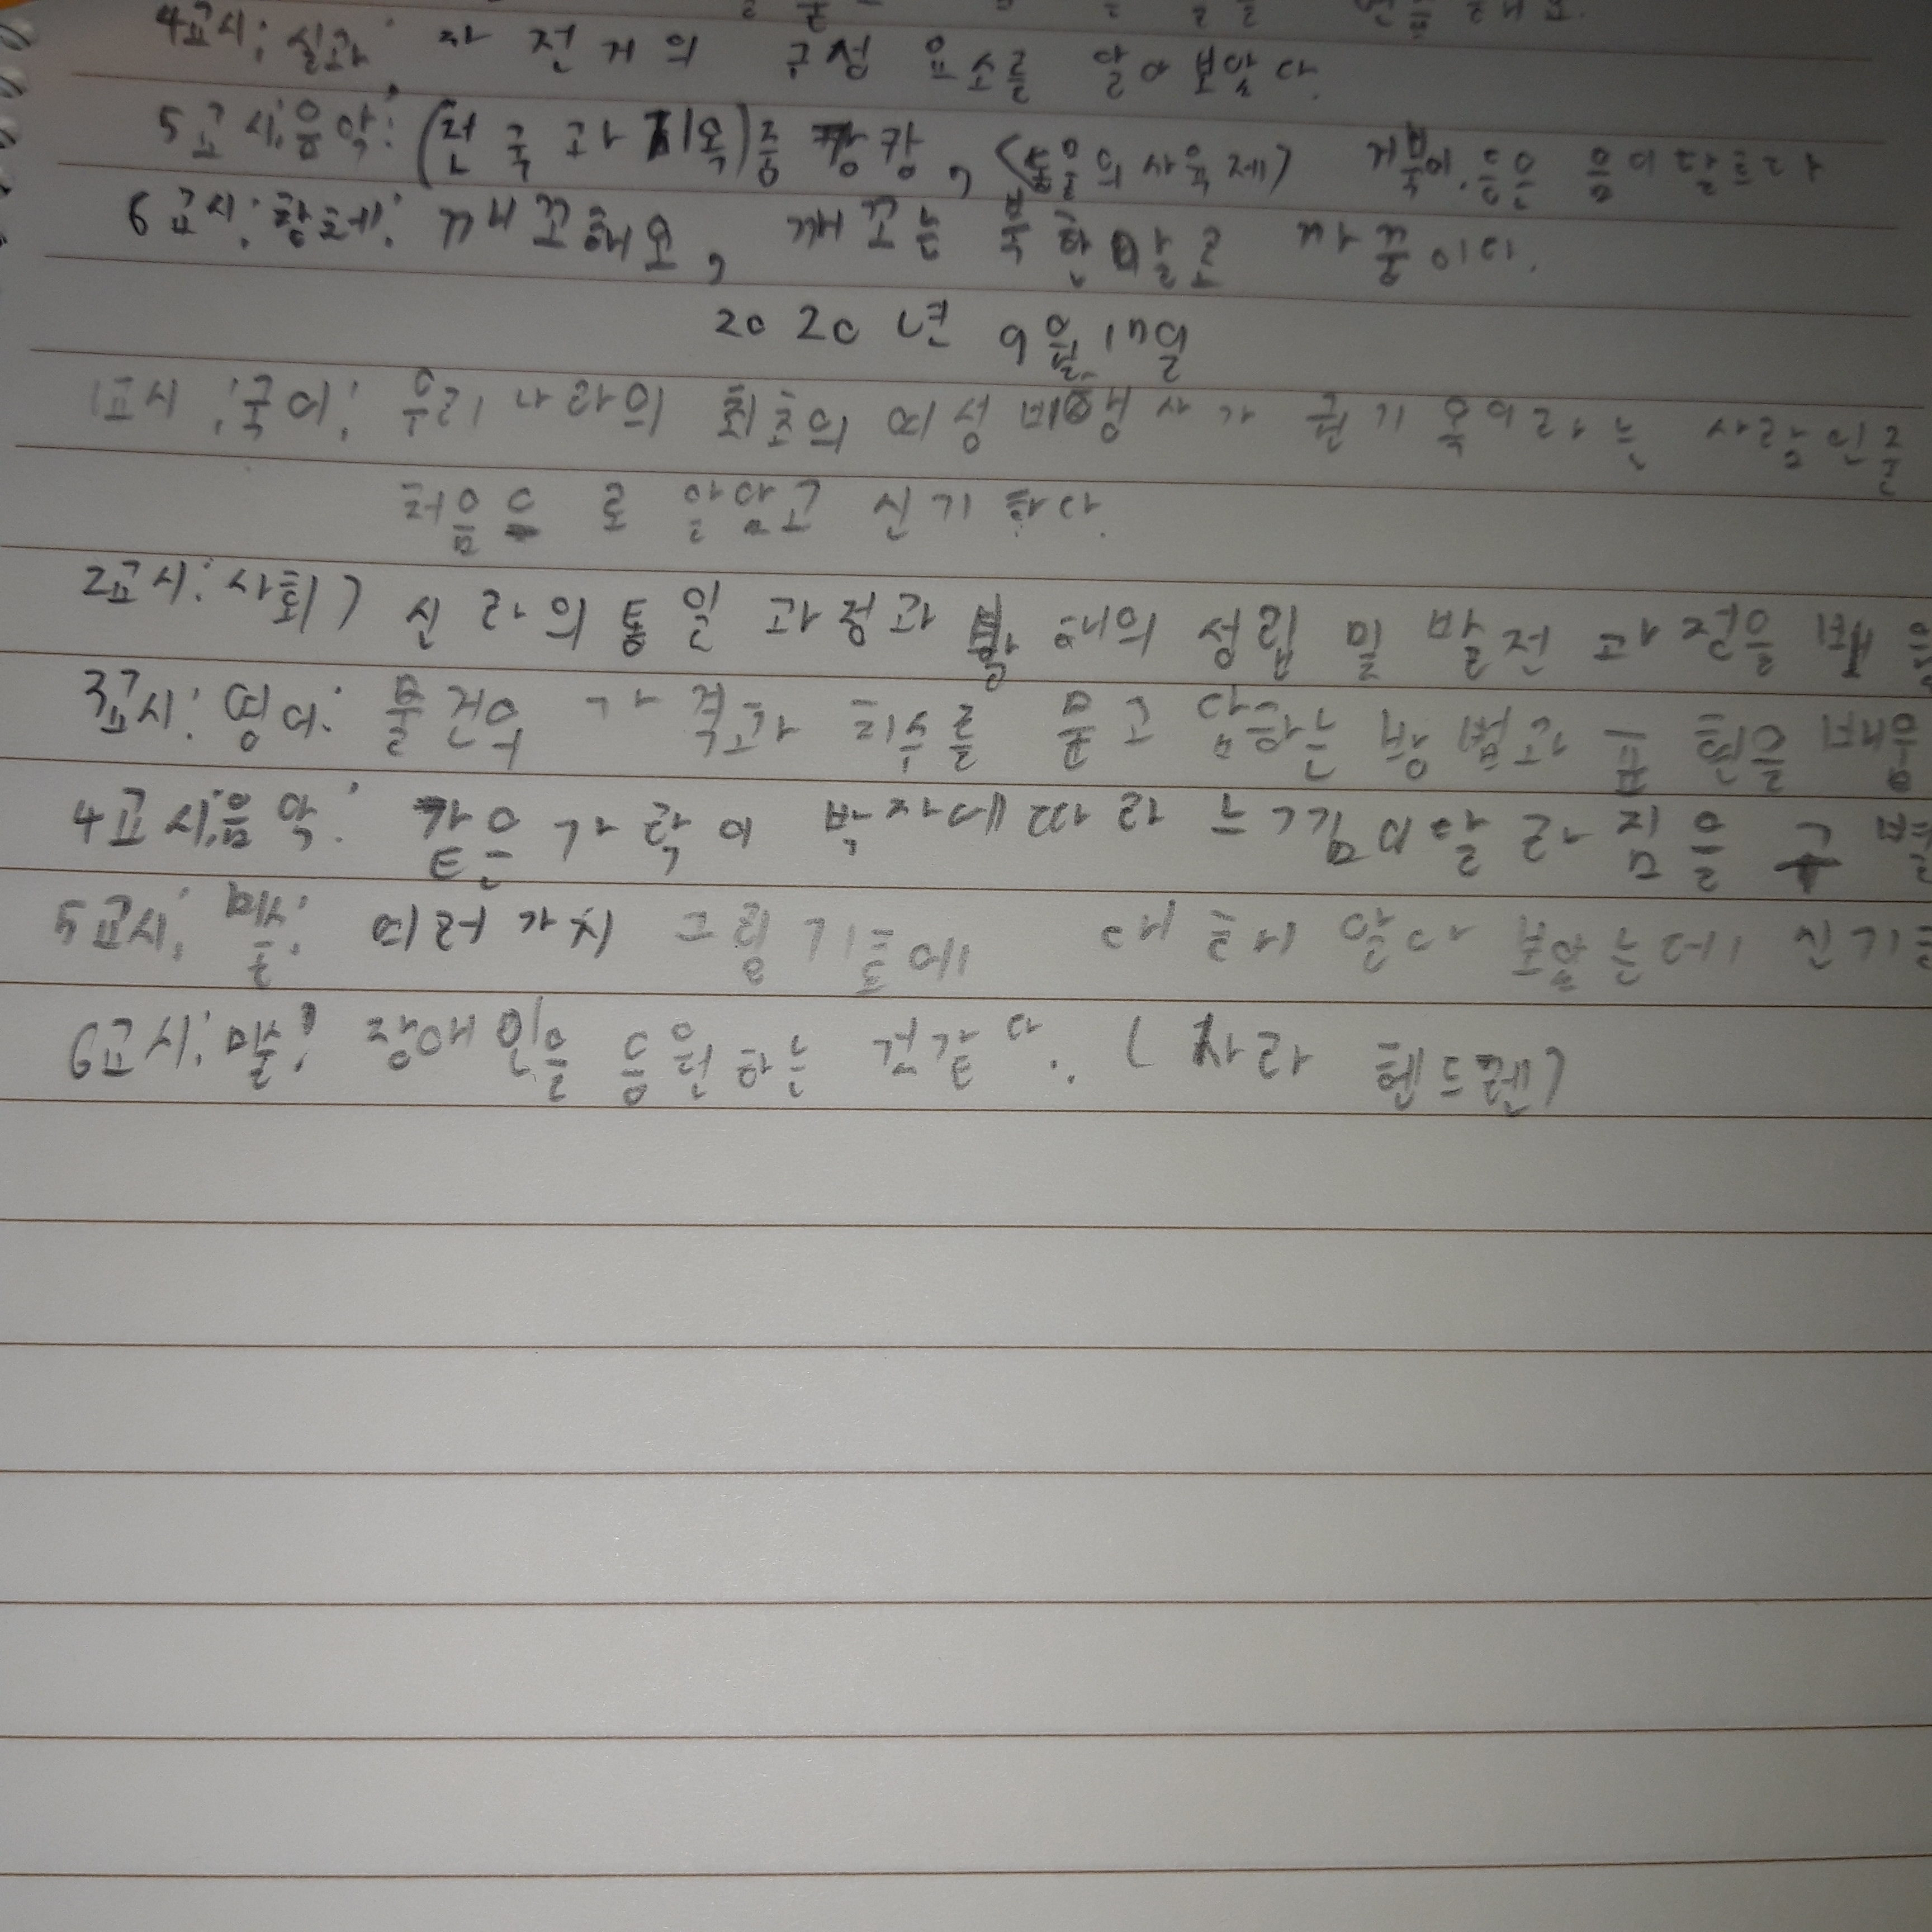 4교시: 실과: 자전거의 구성 요소를 알아보았다.
5교시:음악: (천국과 지옥)중 캉캉, (동물의 사육제) 거북이. 등은 음이 다르다
6교시: 창체: 까꼬해요, 깨꼬는 북한말로 까꿍이다.
2020년 9월 17일
1교시:국어: 우리나라의 최초의 여성 비행사가 권기옥이라는 사람인줄
처음으로 알았고 신기하다.
2교시:사회) 신라의 통일 과정과 발해의 성립 및 발전 과정을 배움
3교시: 영어: 물건의 가격과 치수를 묻고 답하는 방법과 표현을 배움
4교시:음악: 같은가락이 박자에따라 느낌이달라짐을 구별
5교시: 미술: 여러가지 그림 기호에 대해서 알아보았는데 신기
6교시: 미술: 장애인을 응원하는 것같다.. (차라 헨드렌)